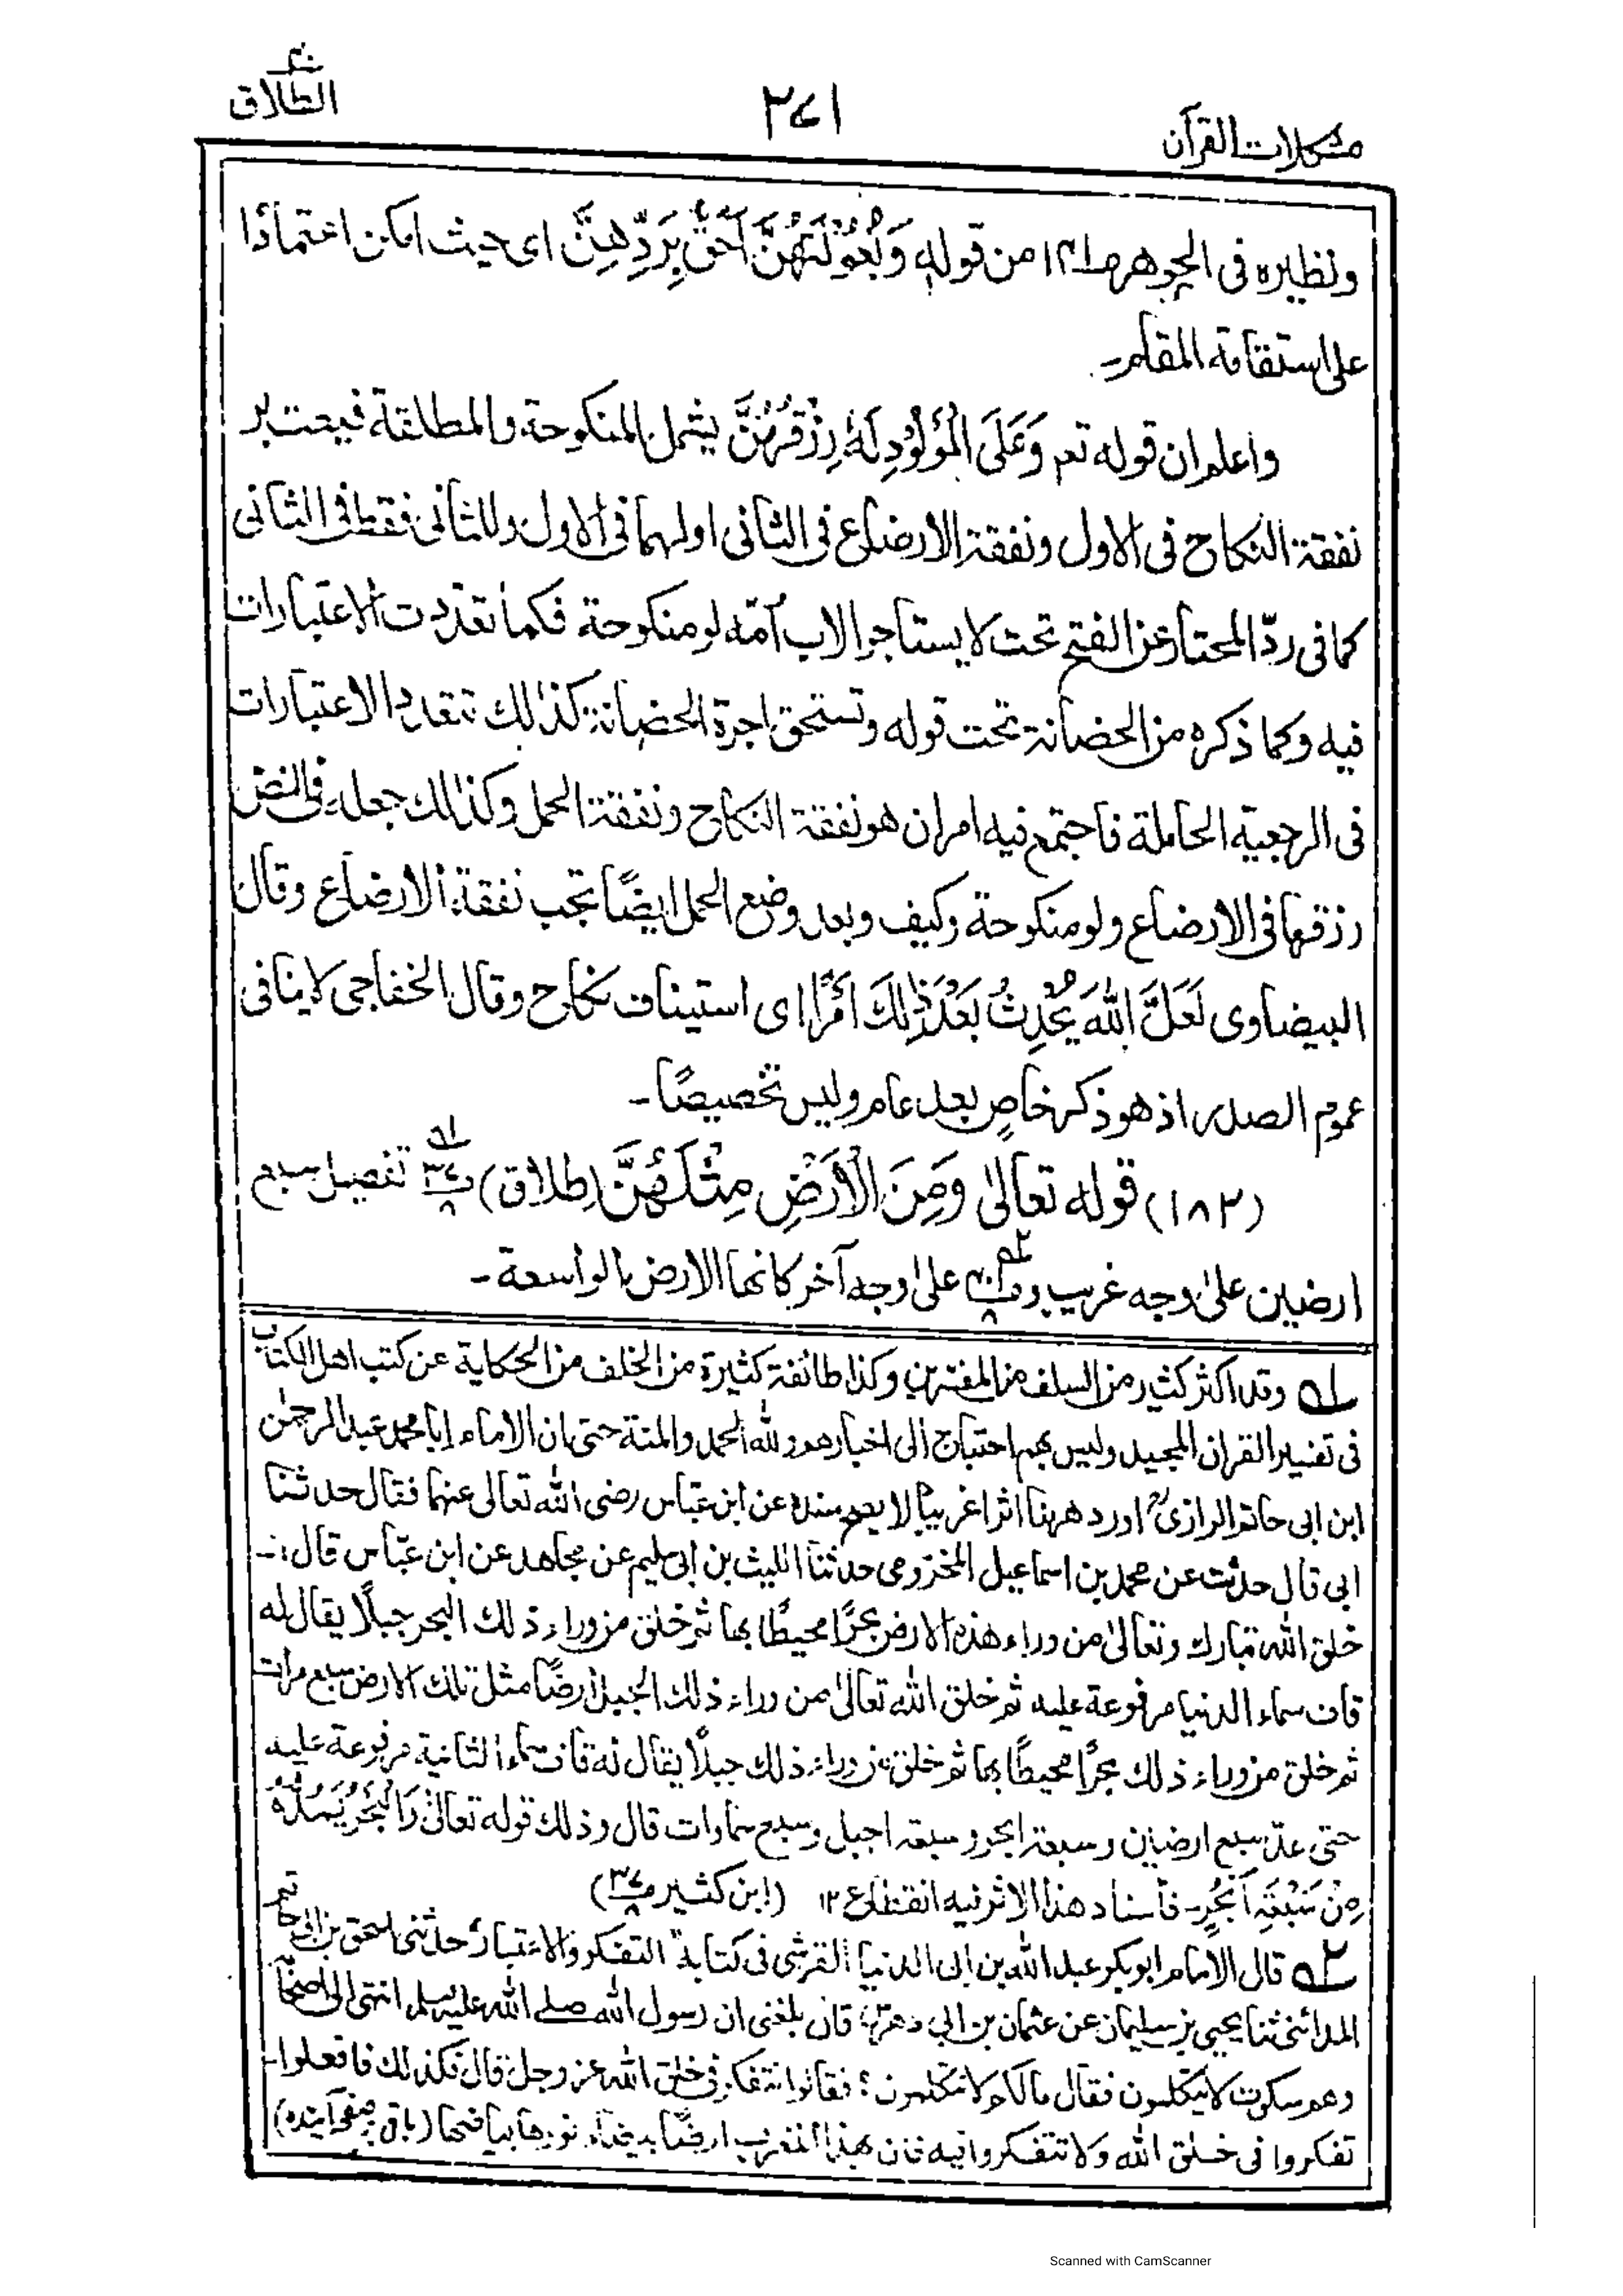 مشكلات القرآن
٢٧١
الطلاق
ونظيره فى الجوهر من قوله وَبُعُوْلَتُهُنَّ اَحَقُّ بِرَدِّهِنَّ اى حيث امكن اعتمادًا
على استقامة المقام۔
واعلم ان قوله تعم وَعَلَى الْمَوْلُوْدِ لَهٗ رِزْقُهُنَّ يشمل المنكوحة والمطلقة فيعتبر
نفقة النكاح فى الاول ونفقة الارضاع فى الثانى اولهما فى الاول وللثانى فقط فى الثانى
كما فى ردّ المحتار عن الفتح تحت لا يستاجر الاب اُمّه لو منكوحة فكما تعددت الاعتبارات
فيه وكما ذكره من الحضانة تحت قوله وتستحق اجرة الحضانة كذٰلك تتعدد الاعتبارات
فى الرجعية الحاملة فاجتمع فيه امران هو نفقة النكاح ونفقة الحمل وكذٰلك جعل فى النص
رزقها فى الارضاع ولو منكوحة وكيف وبعد وضع الحمل ايضًا تجب نفقة الارضاع وقال
البيضاوى لَعَلَّ اللهَ يُحْدِثُ بَعْدَ ذٰلِكَ اَمْرًا اى استيناف نكاح وقال الخفاجى لا ينافى
عموم الصدر اذ هو ذكر خاصٍ بعد عام وليس تخصيصًا۔
(١٨٢) قوله تعالىٰ وَمِنَ الْاَرْضِ مِثْلَهُنَّ (طلاق) تفصيل سبع
ارضين علىٰ وجه غريب و علىٰ وجه آخر كانها الارض بالواسعة۔
١ه وقد اكثر كثير من السلف من المفسّرين وكذا طائفة كثيرة من الخلف من الحكاية عن كتب اهل الكتاب
فى تفسير القران المجيد وليس بهم احتياج الى اخبارهم ولله الحمد والمنة حتى ان الامام ابا محمد عبد الرحمٰن
ابن ابى حاتم الرازىؒ اورد ههنا اثرا غريبًا لا يصح سنده عن ابن عباس رضى الله تعالى عنهما فقال حدثنا
ابى قال حدثت عن محمد بن اسماعيل المخزومى حدثنا الليث بن ابى سليم عن مجاهد عن ابن عبّاس قال:۔
خلق الله تبارك وتعالىٰ من وراء هذه الارض بحرًا محيطًا بها ثم خلق من وراء ذلك البحر جبلًا يقال له
قاف سماء الدنيا مرفوعة عليه ثم خلق الله تعالىٰ من وراء ذلك الجبل ارضًا مثل تلك الارض سبع مرات
ثم خلق من وراء ذلك بحرًا محيطًا بها ثم خلق من وراء ذلك جبلًا يقال له قاف سماء الثانية مرفوعة عليه
حتى عدّ سبع ارضين وسبعة ابحر وسبعة اجبل وسبع سماوات قال وذلك قوله تعالىٰ وَالْبَحْرُ يَمُدُّهٗ
مِنْۢ سَبْعَةِ اَبْحُرٍ۔ فاسناد هذا الاثر فيه انقطاع ١٢ (ابن كثير)
٢ه قال الامام ابو بكر عبد الله بن ابى الدنيا القرشى فى كتابه "التفكر والاعتبار" حدثنى اسحق بن ابى حاتم
المدائنى ثنا يحيى بن سليمان عن عثمان بن ابى دهرس قال بلغنى ان رسول الله صلى الله عليه وسلم انتهى الى اصحابه
وهم سكوت لا يتكلمون فقال مالكم لا تتكلمون؟ فقالوا نتفكر فى خلق الله عز وجل قال فكذلك فافعلوا۔
تفكروا فى خلق الله ولا تتفكروا فيه فان بهذا المغرب ارضًا بيضاء نورها بياضها (باقى بصفحۂ آينده)
Scanned with CamScanner